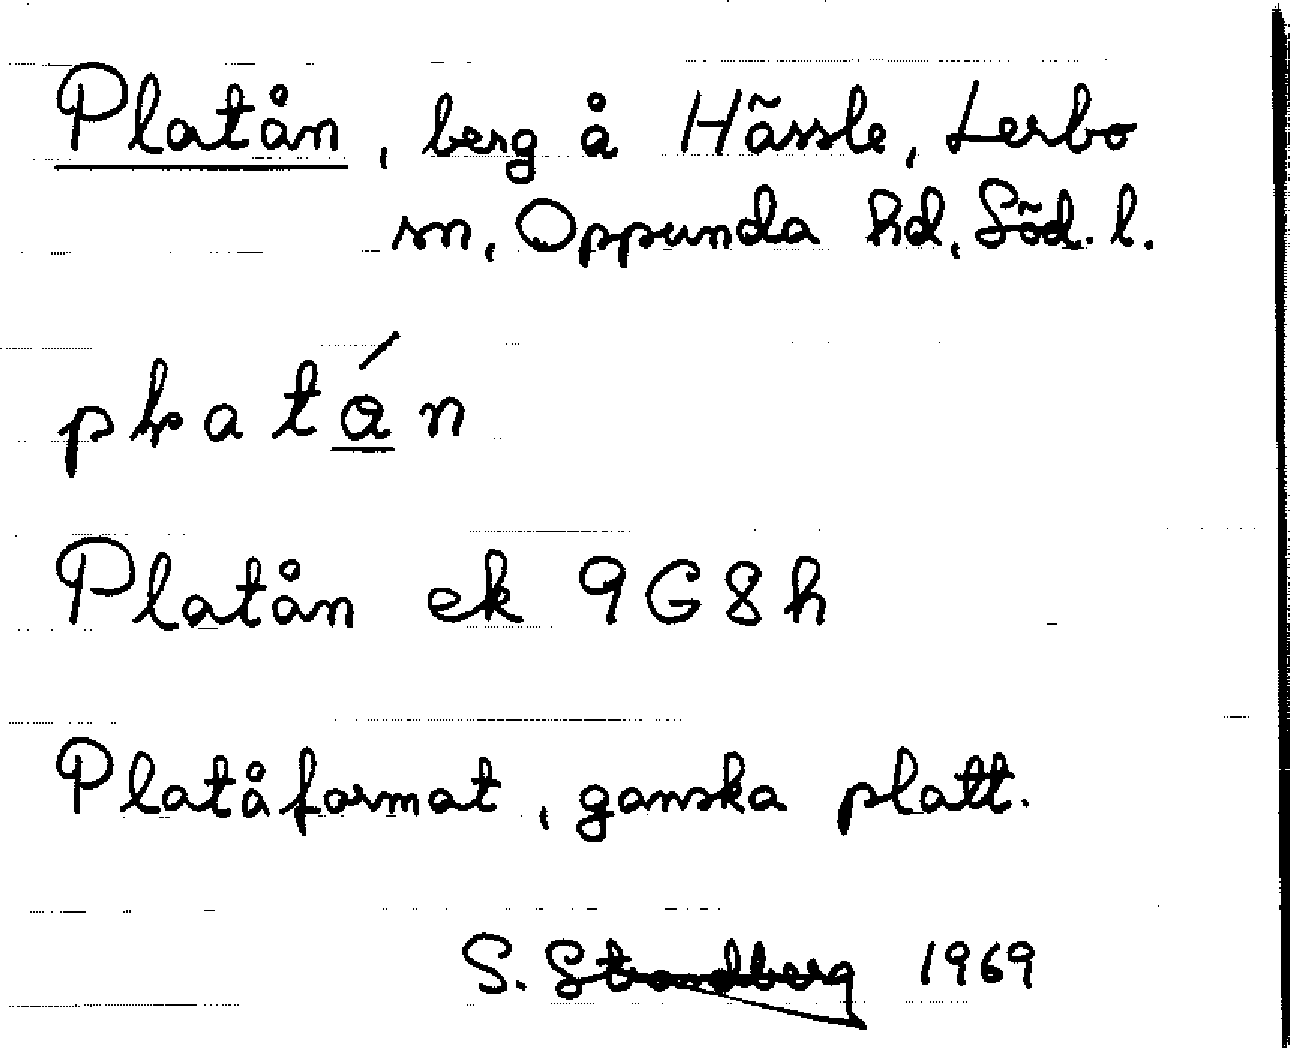 Platån, berg å Hässle, Lerbo
sn, Oppunda hd, Söd. l.
platán
Platån ek 9G8h
Platåformat, ganska platt.
S. Strandberg 1969